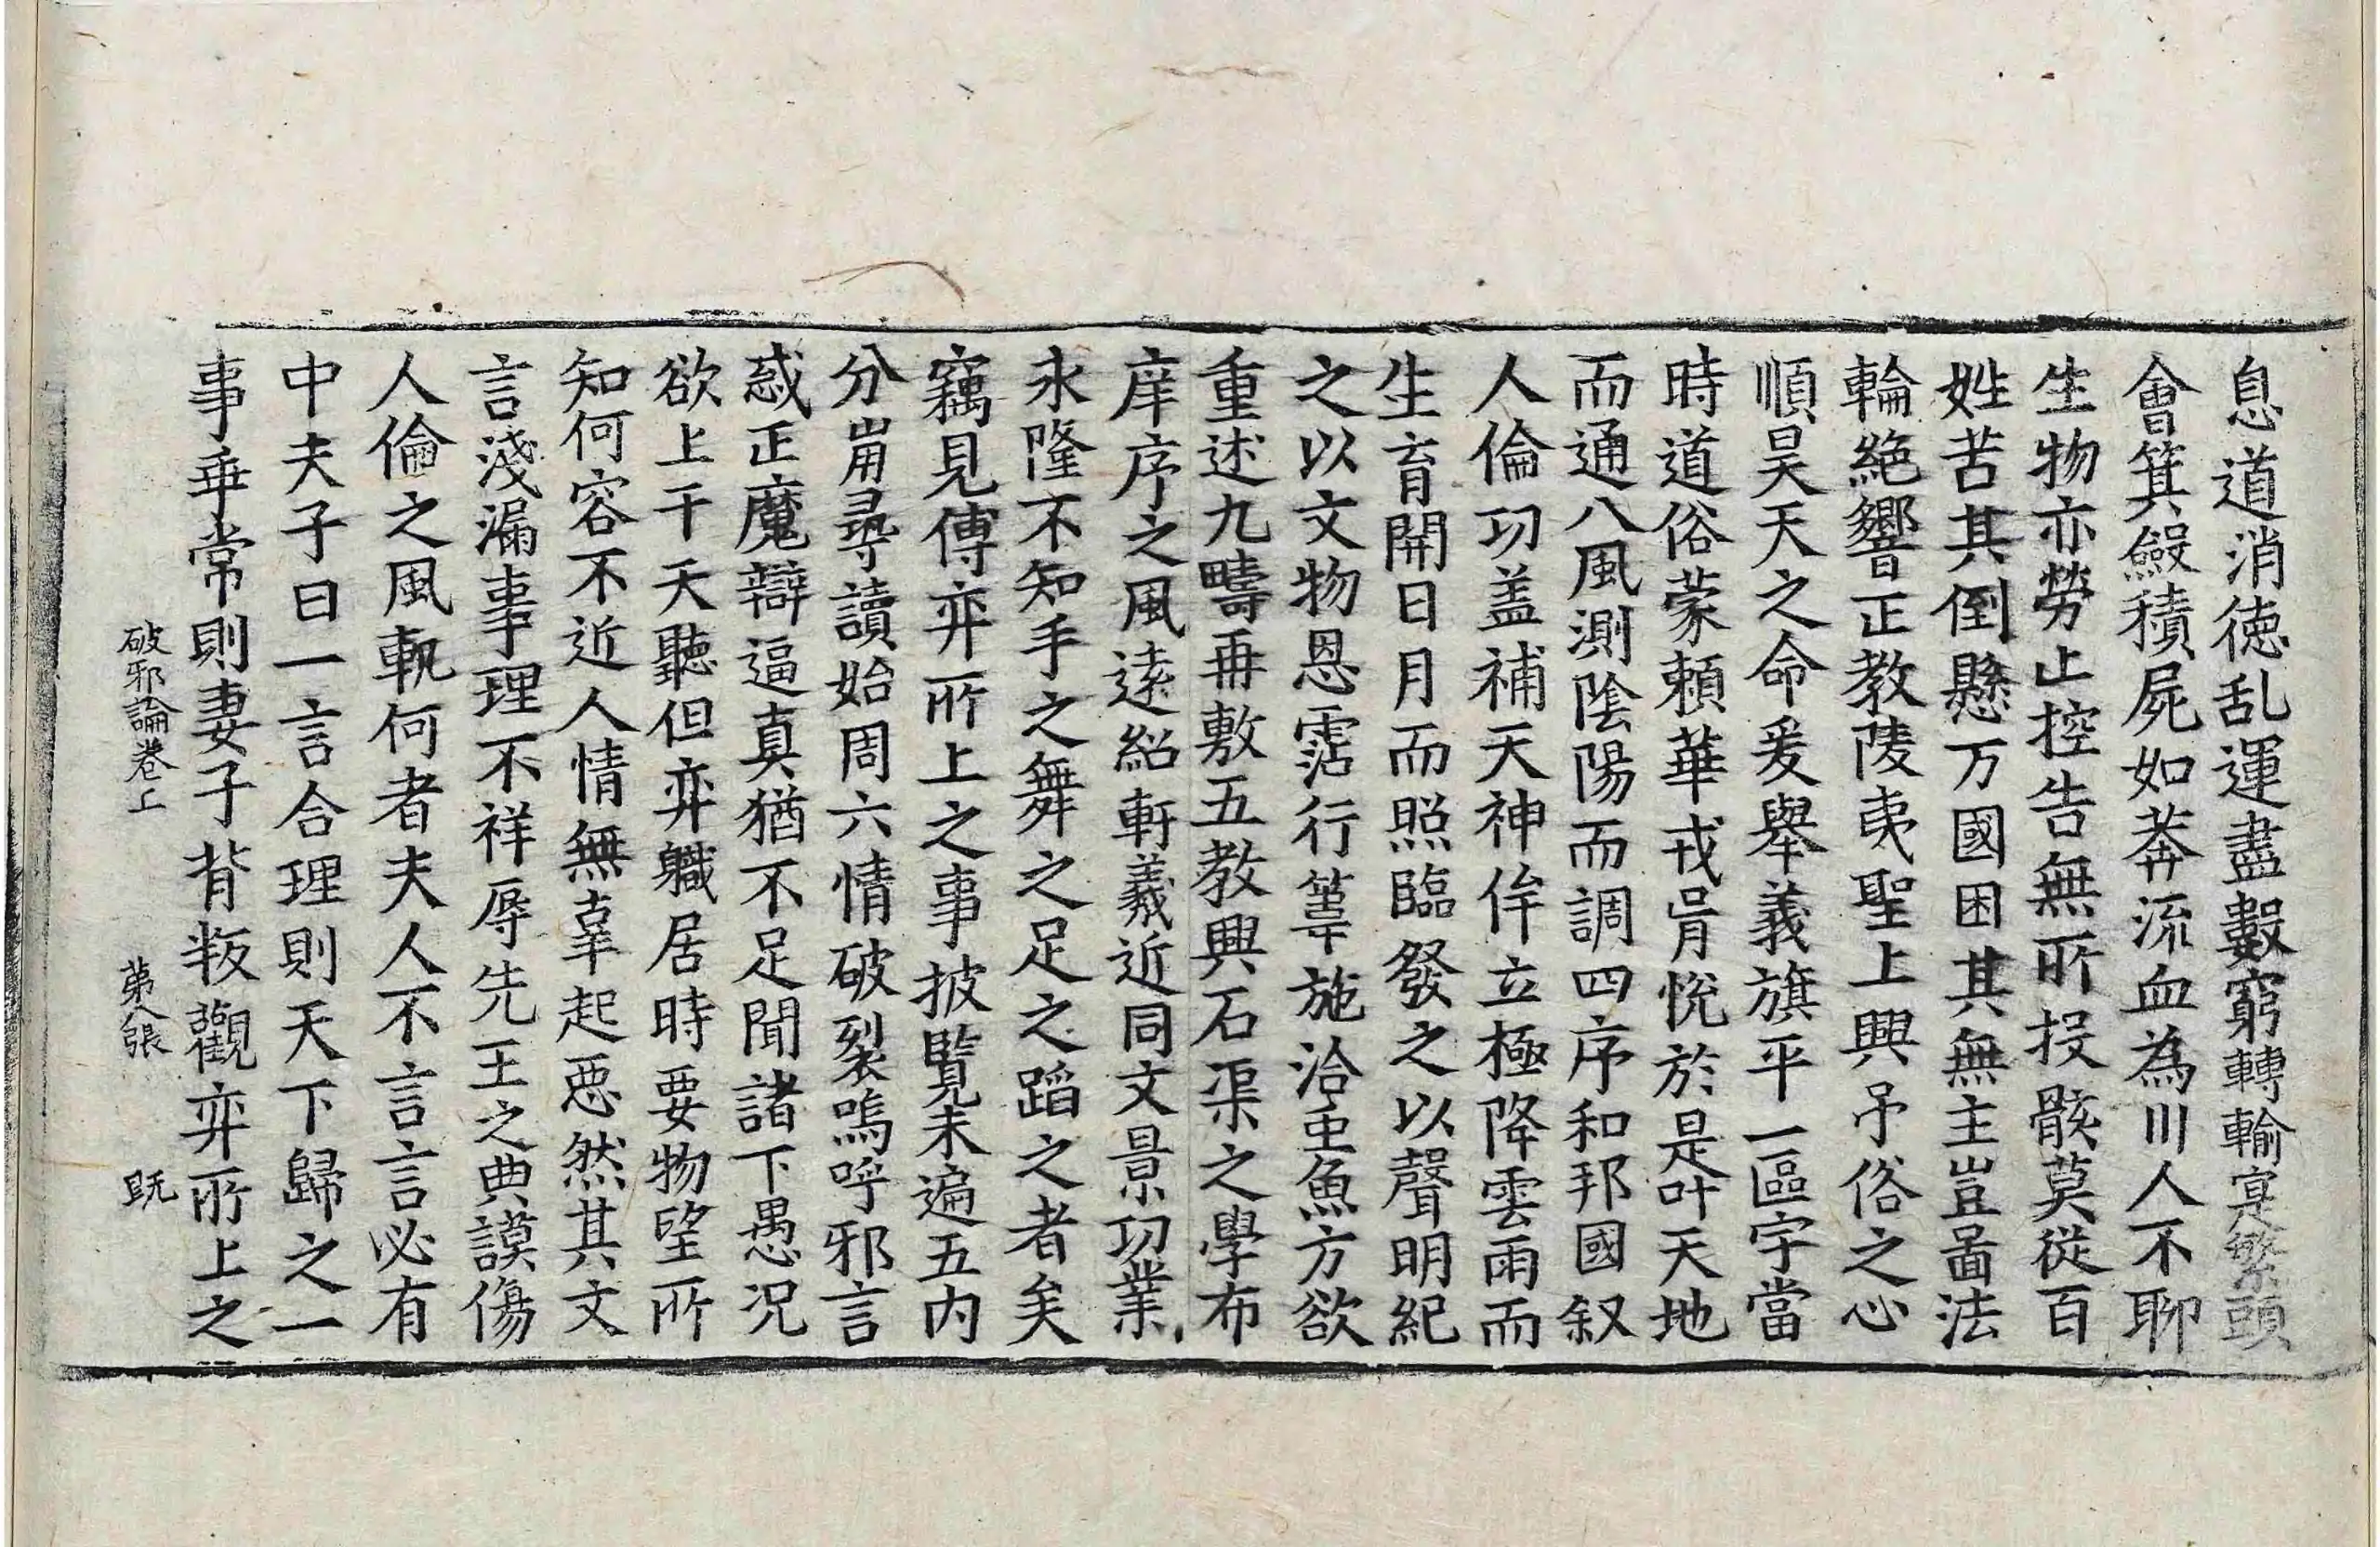 息道消徳乱運盡數窮轉輸寔繁頭
會箕斂積屍如莽流血為川人不聊
生物亦勞止控告無所投骸莫從百
姓苦其倒懸万國困其無主豈啚法
輪絶響正教陵夷聖上興吊俗之心
順昊天之命爰舉義旗平一區宇當
時道俗蒙頼華戎胥恱於是叶天地
而通八風測陰陽而調四序和邦國叙
人倫功盖補天神侔立極降雲雨而
生育開日月而照臨發之以聲明紀
之以文物恩霑行葦施洽虫魚方欲
重述九疇再敷五教興石渠之學布
庠序之風遠紹軒羲近同文景功業
永隆不知手之舞之足之蹈之者矣
竊見傅弈所上之事披覽未遍五内
分崩尋讀始周六情破裂嗚呼邪言
惑正魔辯逼真猶不足聞諸下愚况
欲上干天聽但弈職居時要物望所
知何容不近人情無辜起惡然其文
言淺漏事理不祥辱先王之典謨傷
人倫之風軌何者夫人不言言必有
中夫子曰一言合理則天下歸之一
事乖常則妻子背叛觀弈所上之
破邪論卷上　苐八張　旣